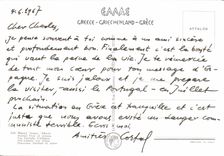 ΕΛΛΑΣ
GREECE - GRIECHENLAND - GRÈCE
9.6.1967
Cher Charles,
Je pense souvent à toi comme à un ami sincère
et profondément bon. Finalement c'est la bonté
qui vaut la peine de la vie. Je te remercie
de tout mon cœur pour ton message à
Je suis jaloux et je me prépare
la visiter, aussi le Portugal - en Juillet
prochain.
La situation en Grèce est tranquille et c'est
juste que nous avons évité un danger com-
muniste terrible. Ecris-moi
Amitiés